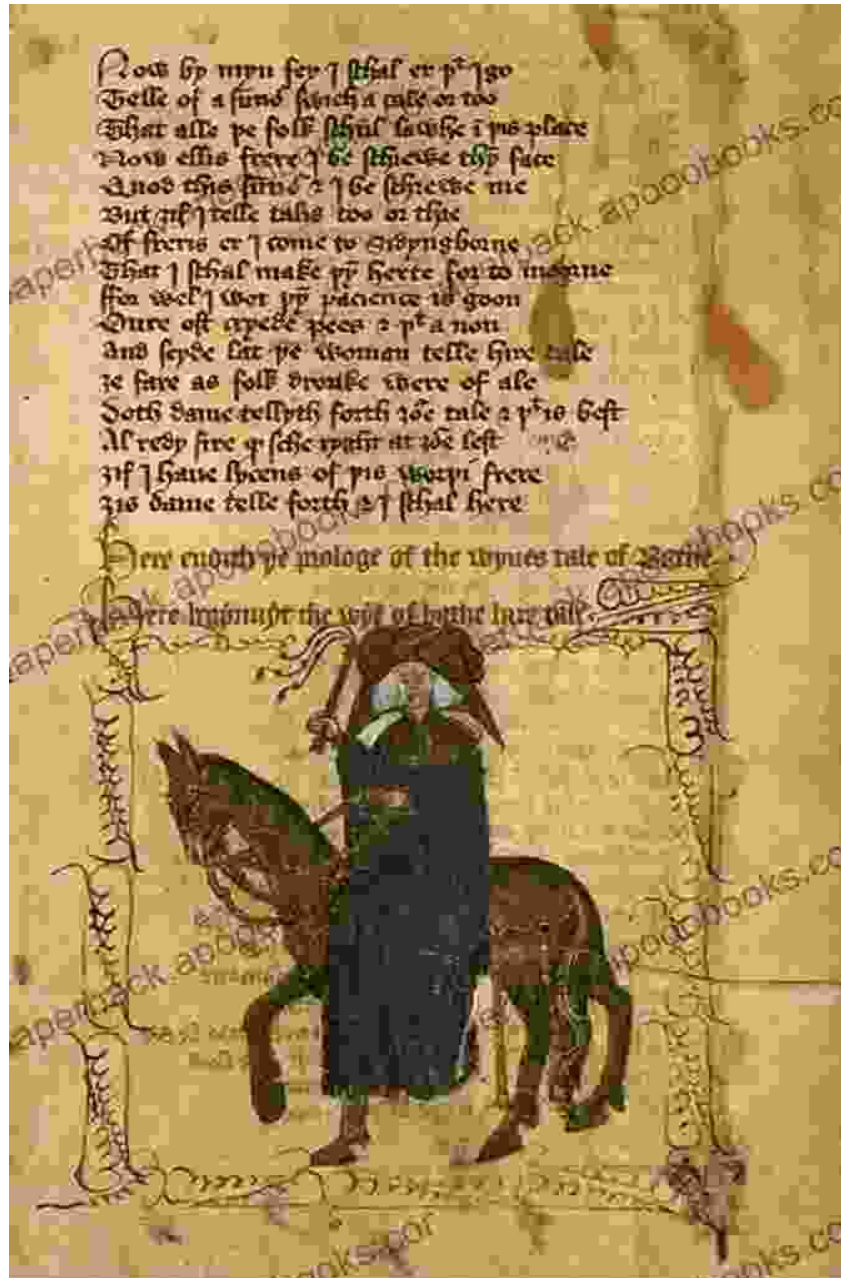 Now by myn fey I schal er þt I go
Telle of a sumnᵒ swich a tale or too
That alle þe folk schul lawhe ī þis place
Now ellis frere I be schrewe thy face
Quod this sumnᵒ & I be schrewe me
But ȝif I telle talis too or thre
Of freris er I come to Sidyngborne
That I schal make þȳ herte for to moorne
ffor wel I wot þȳ pacience is goon
Oure ost cryede pees & þt a non
And seyde lat þe woman telle hire tale
ȝe fare as folk dronke were of ale
Doth dame tellyth forth ȝoᵉ tale & þt is best
Al redy sire qᵈ sche ryght at ȝoᵉ lest
ȝif I haue lycens of þis worþi frere
ȝis dame telle forth & I schal here
Here endyth þe prologe of the wyues tale of Bathe
Here begynnyþ the wyf of bathe hire tale
paperback.apooobooks.com